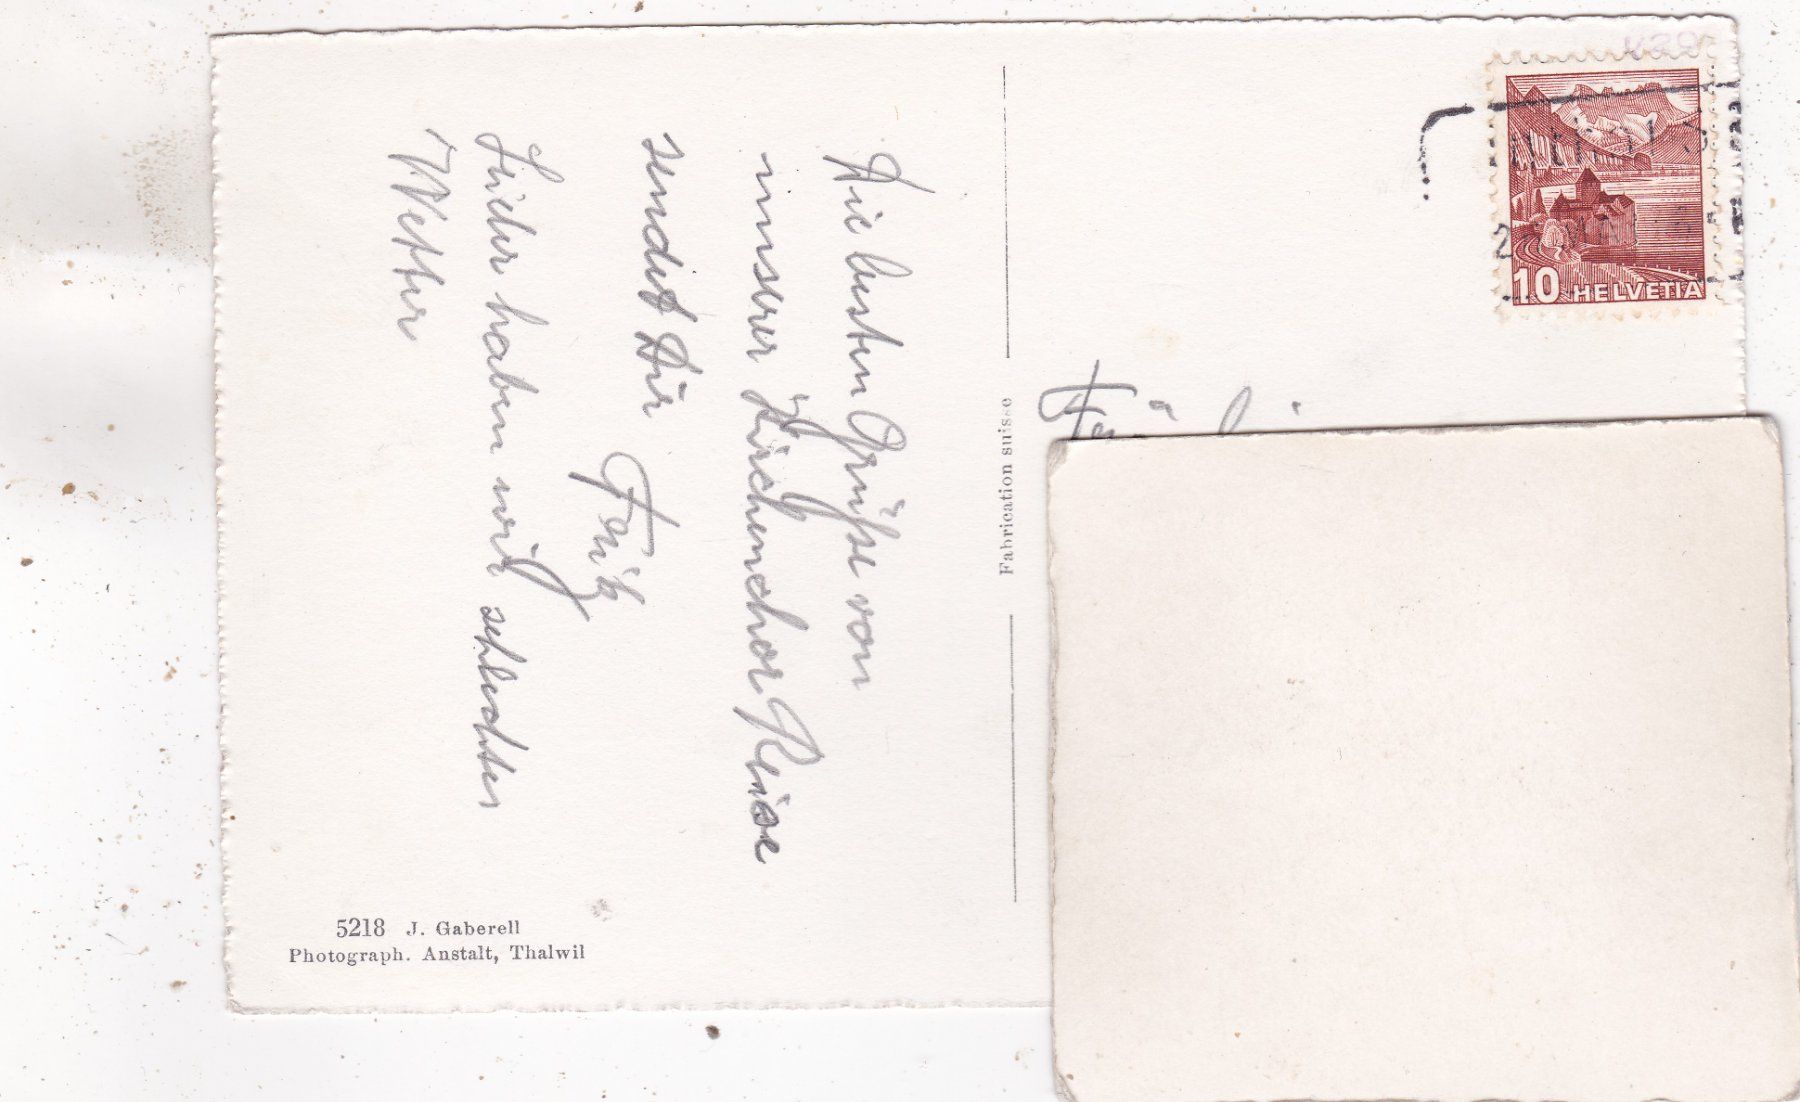 Die besten Grüsse von
unserer Kirchenchor Reise
sendet Dir Fritz
Leider haben wir schlechtes
Wetter
Fabrication suisse
5218 J. Gaberell
Photograph. Anstalt, Thalwil
10 HELVETIA